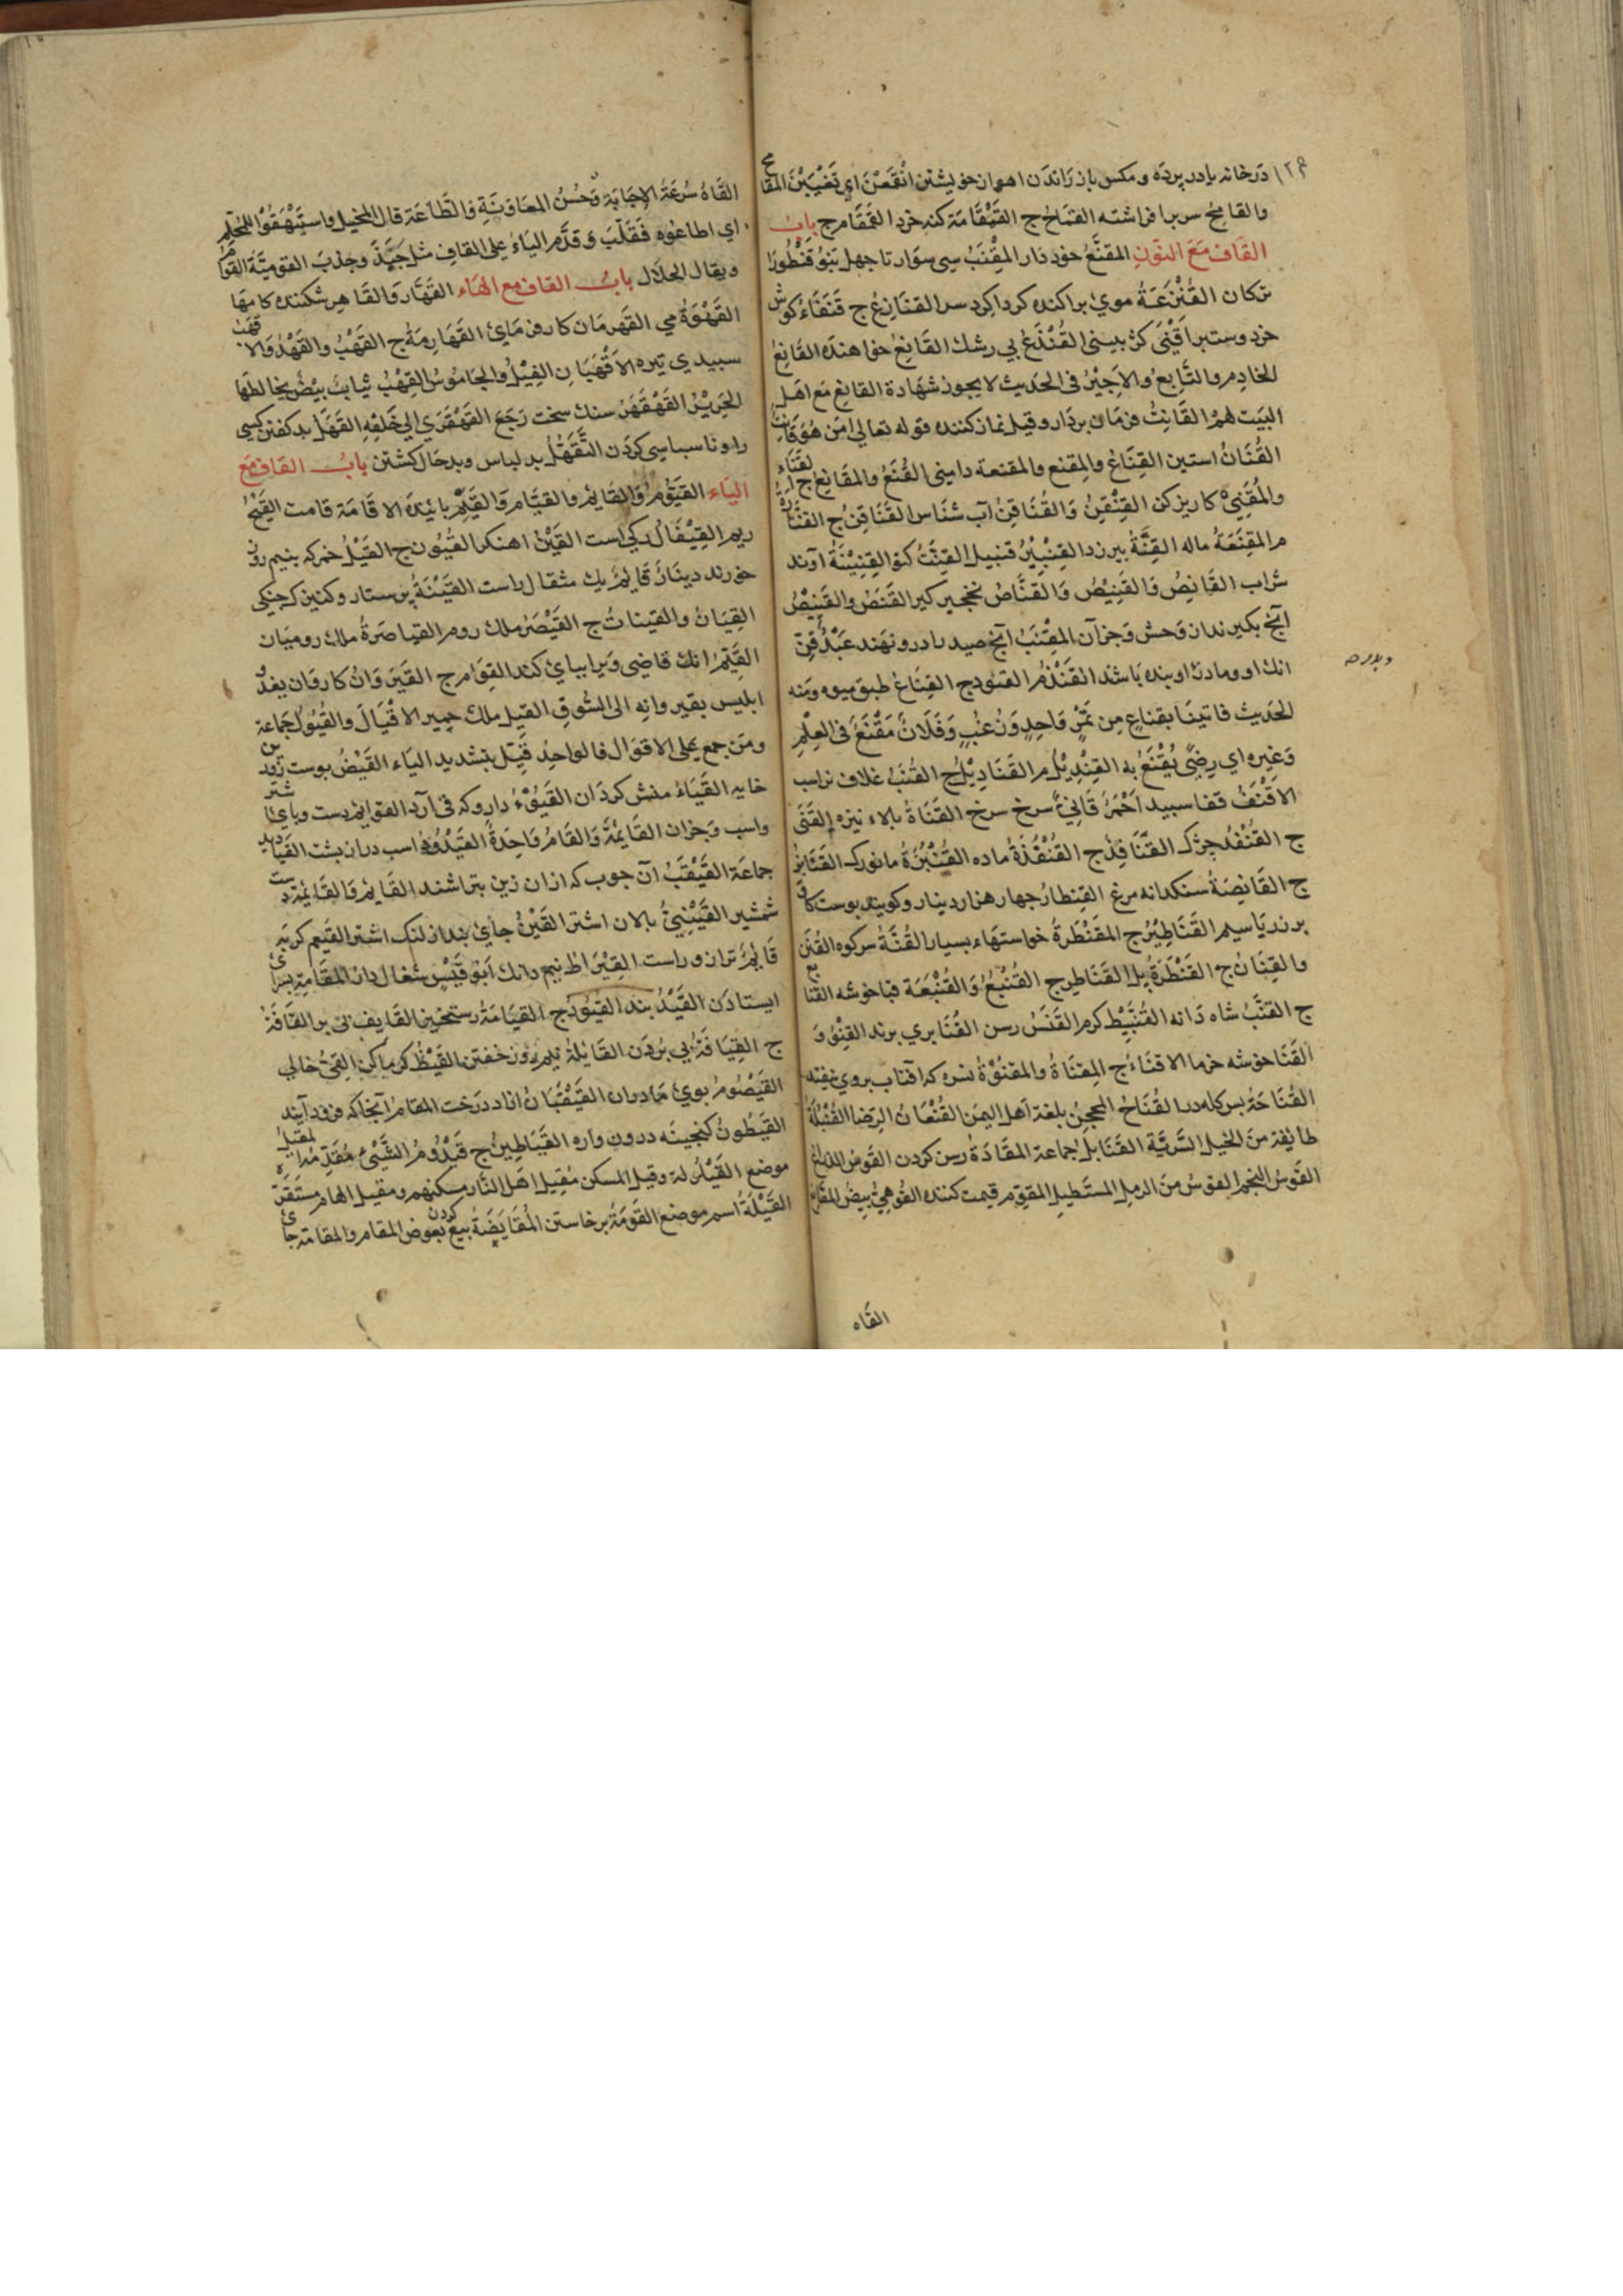 ١٢٤ درخانه يا در پرده و مكس باز راندن اهو از خويشتن انقمعن اي تغيبن المقامح
والقامح سر برا فراشته القماح ج القمقامة كنه خرد القمقام ج باب
القاف مع النون المقنع خود دار المقنب سي سوار تا چهل بنو قنطورا
تركان القنزعة موي براكنده كردا كرد سر القنازع ج قنفاء كوش
خرد وستبر اقنى كژ بيني القنذع بي رشك القانع خواهنده القانع
الخادم والتابع والاجير في الحديث لا يجوز شهادة القانع مع اهل
البيت لهم القانت فرمان بردار وقيل نماز كننده قوله تعالى امن هو قانت
القنان استين القناع والمقنع والمقنعة داميني القنع والمقانع ج
والمقني كاريز كن القنقن والقناقن آب شناس القناقن ج
م المقنعة ماله القنة بيرزد القنبيل قنبيل القنت القنينة آوند
شراب القانص والقنيص والقناص نخجير كير القنص والقنيص
آنج بكيرند از وحش وجز آن المقنب آنج صيد را درو نهند عبد قن
انك او و مادرش او بنده باشند القناع طبق ميوه ومنه
الحديث فاتينا بقناع من تمر واحد وزن عنب وفلان مقنع في العلم
وغيره اي رضى يقنع به القنديل م القناديل ج القنب غلاف نر اسب
الاقنف قفا سبيد احمر قانئ سرخ سرخ القناة بالاء نيزه القنى
ج القنفذ چژك القنافذ ج القنفذة ماده القنبرة القنابر
ج القانصة سنكدانه مرغ القنطار چهار هزار دينار وكويند بوست كاو
بر زر يا سيم القناطير ج المقنطرة خواستهاء بسيار القنة سر كوه القنن
والقنان ج القنطرة پل القناطر ج القنبع والقنبعة
ج القنب شاه دانه القنبيط كرم القنس رسن القنابري برند القنو و
القنا خوشه خرما الاقناء ج المقناة والمقنوة نسره كه آفتاب بروي نيفتد
القناحة القناح المحجن بلغة اهل اليمن القنعان الرضا القنبلة
طايفة من الخيل السرية القنابل جماعة المقادة رسن كردن القوس الذراع
القوس النجم القوس من الرمل المستطيل المقوم قيمت كننده القوهي بيض
القاه
القاه سرعة الاجابة وحسن المعاونة والطاعة قال المخبل واستيقهوا للمحلم
اي اطاعوه فقلب وقدم الياء على القاف مثل جبذ وجذب القومية القوام
ويقال الجلال باب القاف مع الهاء القهار والقاهر شكننده كامها
القهوة مي القهرمان كار فرماي القهارمة ج القهب والقهد والاقهب
سبيدي تيره الاقهبان الفيل والجاموس القهب ثياب بيض يخالطها
الحرير القهقهر سنك سخت رجع القهقرى الي خلفه القهل بد كفتن كسي
را وناسباسي كردن التقهل بد لباس وبدحال كشتن باب القاف مع
الياء القيوم والقايم والقيام والقيم باينده الاقامة قامت القيح
ريم القيفال ركي است القين اهنكر القيون ج القيل خمر كه بنيم روز
خورند دينار قايم يك مثقال راست القينة پرستار وكنيزك چنكي
القيان والقينات ج القيصر ملك روم القياصرة ملك روميان
القيم انك قاضي ويرا بپاي كند القوام ج القيروان كاروان يغدو
ابليس بقيروانه الى السوق القيل ملك حمير الاقيال والقيول جماعة
ومن جمع على الاقوال فالواحد قيل بتشديد الياء القيض بوست زبرين
خايه القياء منش كردان القيوء داروكه قي آرد القوايم دست وپاي شتر
واسب وجز آن القايمة والقام واحدة القيدود اسب دراز پشت القياديد
جماعة القيقب آن چوب كه ازان زين بتراشند القايم والقايمة دست
شمشير القينني پالان اشتر القين جاي بند از لنك اشتر القيم كربه
قايم ترازو راست القيراط نيم دانك ابو قيس شغال دار المقامة سراي
ايستادن القيد بند القيود ج القيامة رستخيز القايف پي بر القافة
ج القيافة پي بردن القايلة نيم روز خفتن القيظ كرماكرم القي خالي
القيصوم بوي مادران القيقبان ازاد درخت المقام آنجا كه فرود آيند
القيطون كنجينه درون واره القياطين ج قيدوم الشيئ مقدمه المقيل
موضع القيلولة وقيل المسكن مقيل اهل النار مسكنهم ومقيل الهام مستقره
القيلة اسم موضع القومة برخاستن المقايضة بيع كردن بعوض المقام والمقامة جاي